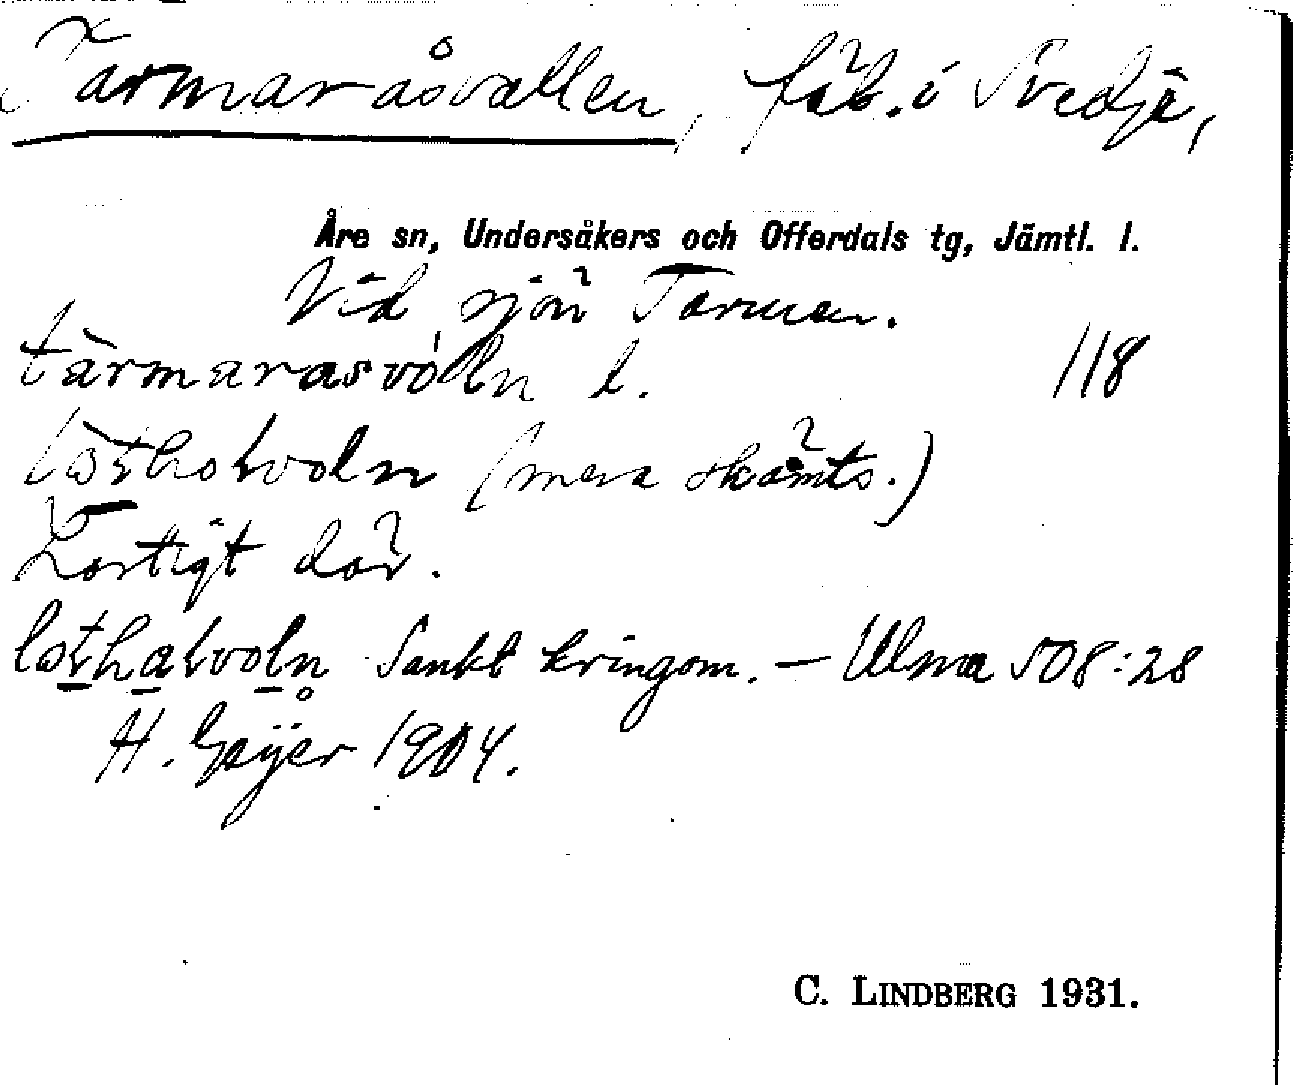 Tarmaråsvallen, fäb. i Svedje,
Åre sn, Undersåkers och Offerdals tg, Jämtl. l.
Vid sjön Tarmen.
tàrmarasvóln l. 118
(mera skämts.)
Lortigt där.
Sankt kringom. – Ulma 508:28
H. Geijer 1904.
C. LINDBERG 1931.